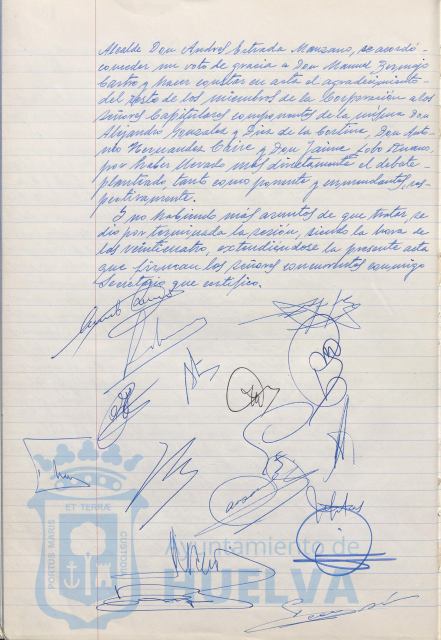 Alcalde Don Andres Estrada Manzano, se acordó
conceder un voto de gracia a Don Manuel Bermejo
Castro y hacer constar en acta el agradecimiento
del resto de los miembros de la Corporación a los
señores Capitulares componentes de la misma Don
Alejandro Gonzalez y Diez de la Cortina, Don Anto-
nio Hernandez Claire y Don Jaime Lobo
por haber llevado más directamente el debate
planteado, tanto como ponente y enmendantes, res-
pectivamente.
Y no habiendo más asuntos de que tratar se
dio por terminada la sesión, siendo la hora de
las veinticuatro, extendiéndose la presente acta
que firman los señores concurrentes conmigo
Secretario que certifico.
ET TERRÆ
PORTUS MARIS
CUSTODIA
Ayuntamiento de
HUELVA